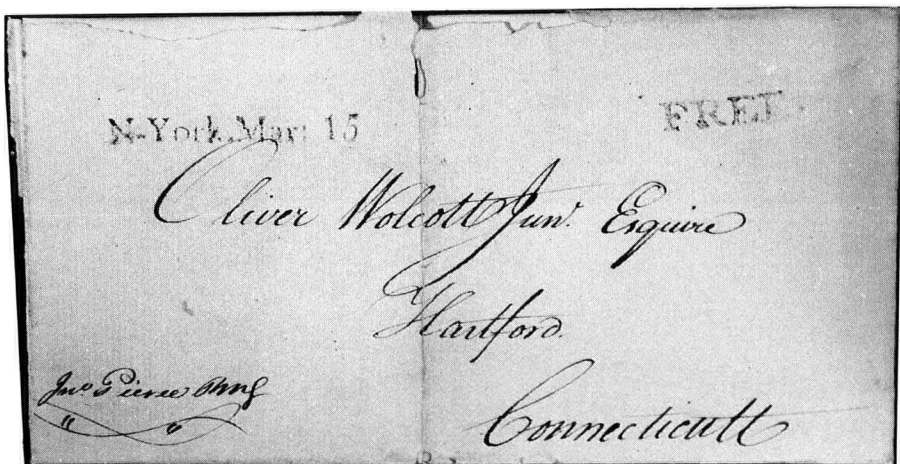 N-York. Mar: 15
FREE
Oliver Wolcott Junr. Esquire
Hartford.
Connecticutt
Jno Pierce PMG